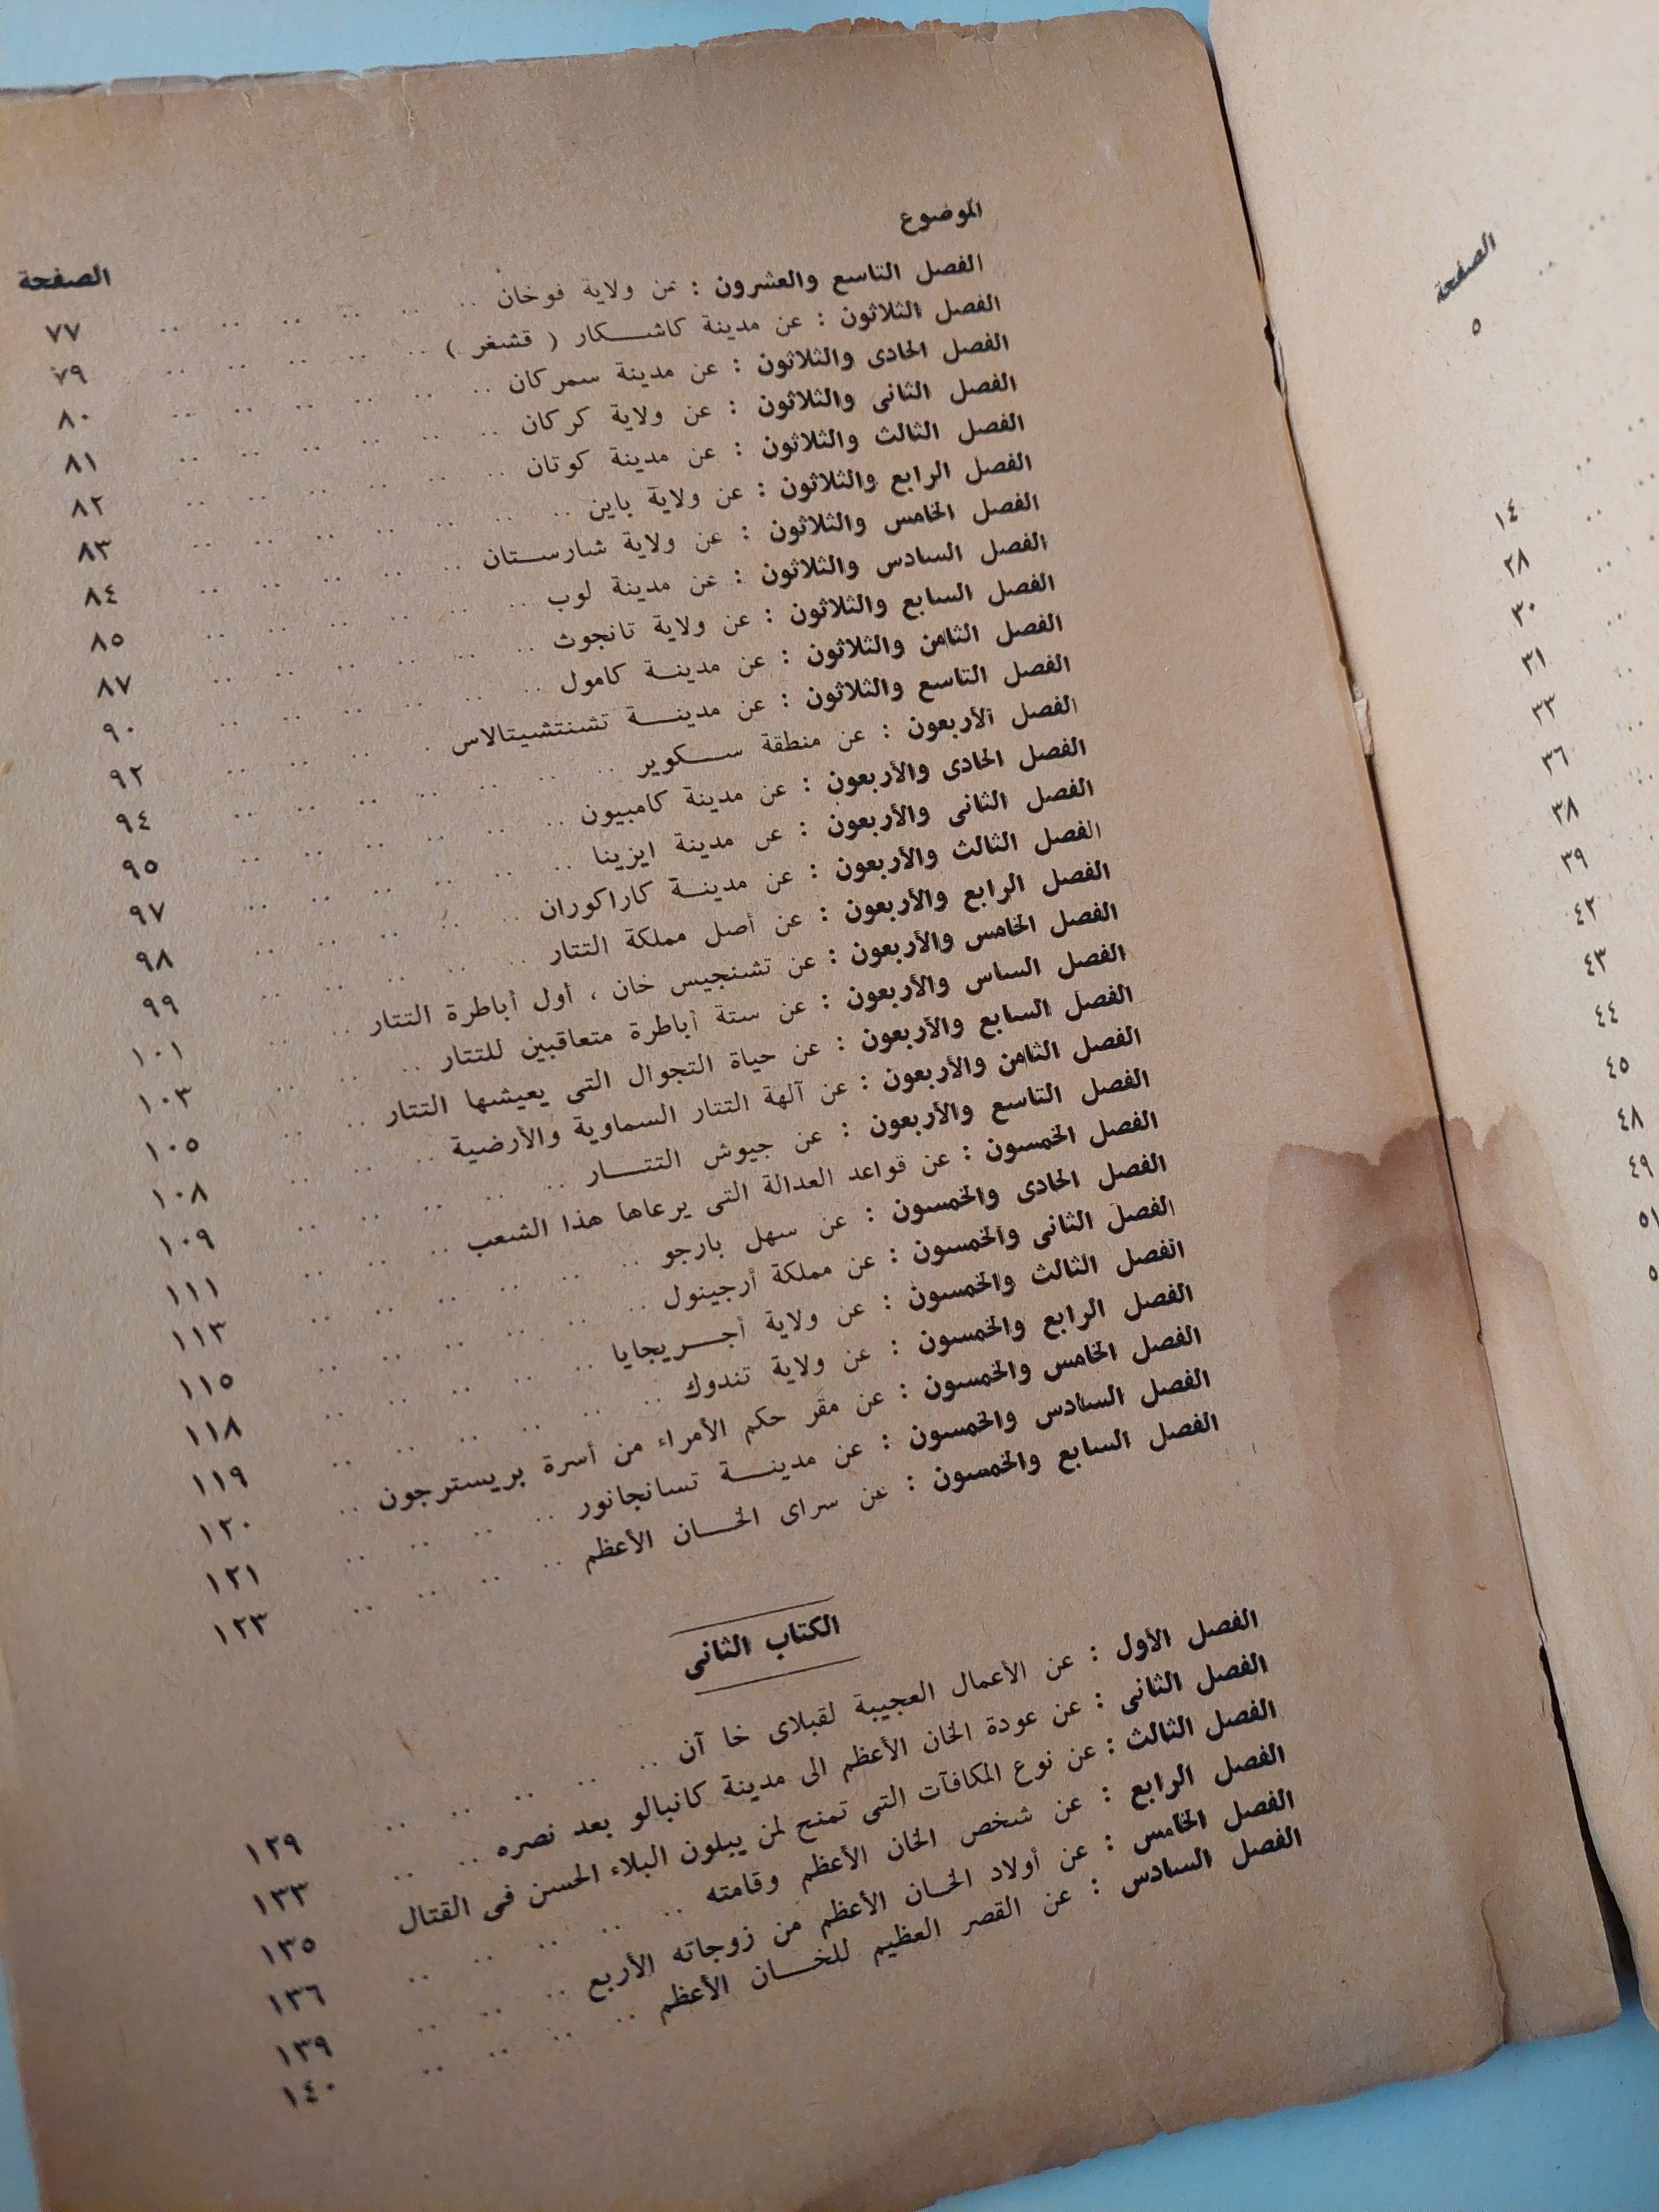 الموضوع الصفحة
الفصل التاسع والعشرون : عن ولاية فوخان .. .. .. .. .. .. ٧٧
الفصل الثلاثون : عن مدينة كاشكار ( قشغر ) .. .. .. .. .. ٧٩
الفصل الحادى والثلاثون : عن مدينة سمركان .. .. .. .. .. .. ٨٠
الفصل الثانى والثلاثون : عن ولاية كركان .. .. .. .. .. .. ٨١
الفصل الثالث والثلاثون : عن مدينة كوتان .. .. .. .. .. .. ٨٢
الفصل الرابع والثلاثون : عن ولاية باين .. .. .. .. .. .. ٨٣
الفصل الخامس والثلاثون : عن ولاية شارستان .. .. .. .. .. ٨٤
الفصل السادس والثلاثون : عن مدينة لوب .. .. .. .. .. .. ٨٥
الفصل السابع والثلاثون : عن ولاية تانجوث .. .. .. .. .. .. ٨٧
الفصل الثامن والثلاثون : عن مدينة كامول .. .. .. .. .. .. ٩٠
الفصل التاسع والثلاثون : عن مدينة تشنتشيتالاس . .. .. .. ٩٢
الفصل الأربعون : عن منطقة سكوير .. .. .. .. .. .. ٩٤
الفصل الحادى والأربعون : عن مدينة كامبيون .. .. .. .. .. .. ٩٥
الفصل الثانى والأربعون : عن مدينة ايزينا .. .. .. .. .. .. ٩٧
الفصل الثالث والأربعون : عن مدينة كاراكوران .. .. .. .. .. ٩٨
الفصل الرابع والأربعون : عن أصل مملكة التتار .. .. .. .. .. ٩٩
الفصل الخامس والأربعون : عن تشنجيس خان ، أول أباطرة التتار .. .. ١٠١
الفصل الساس والأربعون : عن ستة أباطرة متعاقبين للتتار .. .. .. ١٠٣
الفصل السابع والأربعون : عن حياة التجوال التى يعيشها التتار .. .. ١٠٥
الفصل الثامن والأربعون : عن آلهة التتار السماوية والأرضية .. .. .. ١٠٨
الفصل التاسع والأربعون : عن جيوش التتار .. .. .. .. .. ١٠٩
الفصل الخمسون : عن قواعد العدالة التى يرعاها هذا الشعب .. .. .. ١١١
الفصل الحادى والخمسون : عن سهل بارجو .. .. .. .. .. .. ١١٣
الفصل الثانى والخمسون : عن مملكة أرجينول .. .. .. .. .. .. ١١٥
الفصل الثالث والخمسون : عن ولاية أجريجايا .. .. .. .. .. ١١٨
الفصل الرابع والخمسون : عن ولاية تندوك .. .. .. .. .. .. ١١٩
الفصل الخامس والخمسون : عن مقر حكم الأمراء من أسرة بريسترجون .. ١٢٠
الفصل السادس والخمسون : عن مدينة تسانجانور .. .. .. .. ١٢١
الفصل السابع والخمسون : عن سراى الخان الأعظم .. .. .. .. ١٢٣
الكتاب الثانى
الفصل الأول : عن الأعمال العجيبة لقبلاى خا آن .. .. .. .. .. ١٢٩
الفصل الثانى : عن عودة الخان الأعظم الى مدينة كانبالو بعد نصره .. .. ١٣٣
الفصل الثالث : عن نوع المكافآت التى تمنح لمن يبلون البلاء الحسن فى القتال ١٣٥
الفصل الرابع : عن شخص الخان الأعظم وقامته .. .. .. .. .. ١٣٦
الفصل الخامس : عن أولاد الخان الأعظم من زوجاته الأربع .. .. .. ١٣٩
الفصل السادس : عن القصر العظيم للخان الأعظم .. .. .. .. ١٤٠
الصفحة
٥
١٤
٢٨
٣٠
٣١
٣٣
٣٦
٣٨
٣٩
٤٢
٤٣
٤٤
٤٥
٤٨
٤٩
٥١